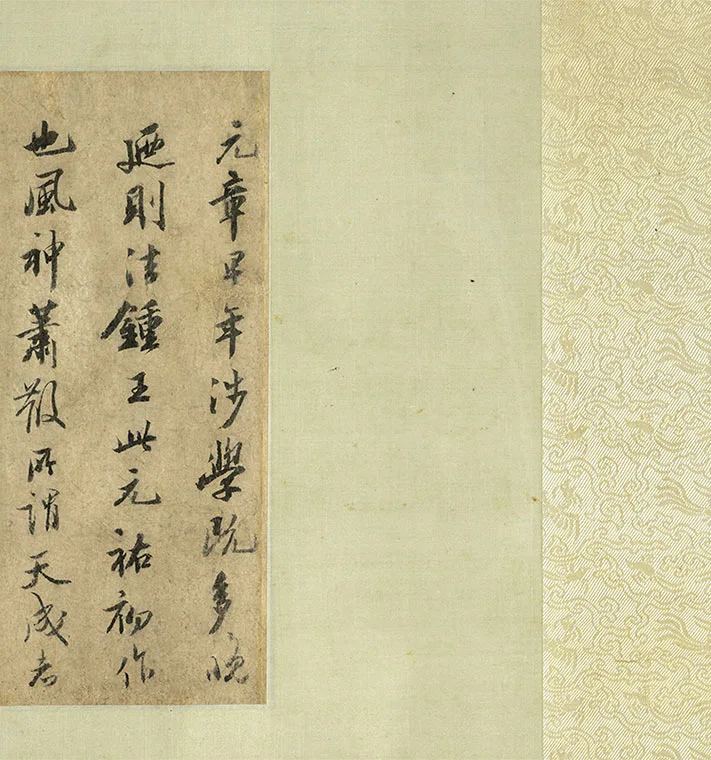 元章早年涉學既多晚
廼則法鍾王此元祐初作
也風神蕭散所謂天成者